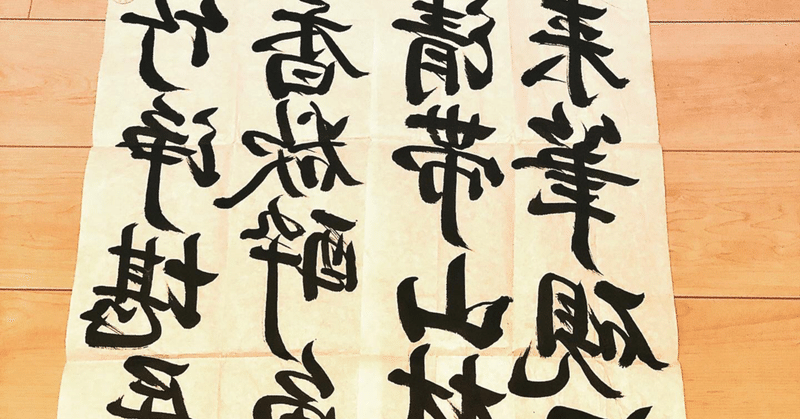 竹浄堪
香秋酔
清帯山林
来筆硯